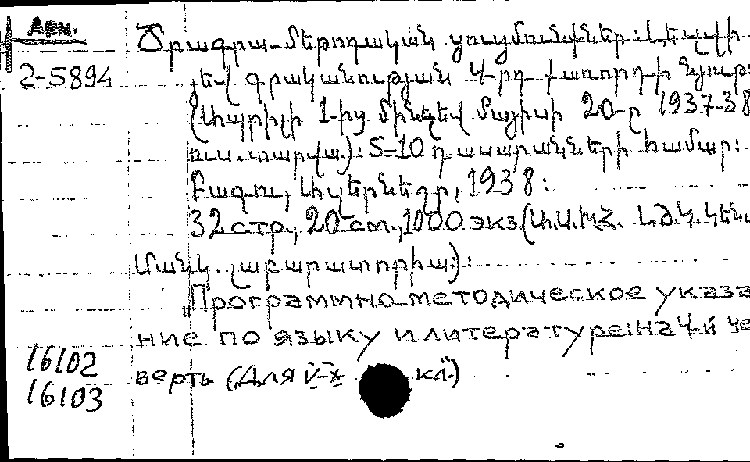 Арм.
2-5894
Ծրագրա-մեթոդական ցուցմունքներ: Լեզվի
եվ գրականության 4-րդ քառորդի նյութ:
(Ապրիլի 1-ից մինչեվ մայիսի 20-ը 1937-38
ուս. տարվա): 5-10 դասարանների համար:
Բագու, Ազերնեշր, 1938:
32 стр., 20 см., 1000 экз. (Ա.Ս.Ի.Հ. Լ.Ժ.Կ. Կեն
Մանկ. լաբարատորիա):
Программно-методическое указа
ние по языку и литературе на 4-й че
верть (Для кл.)
16102
16103